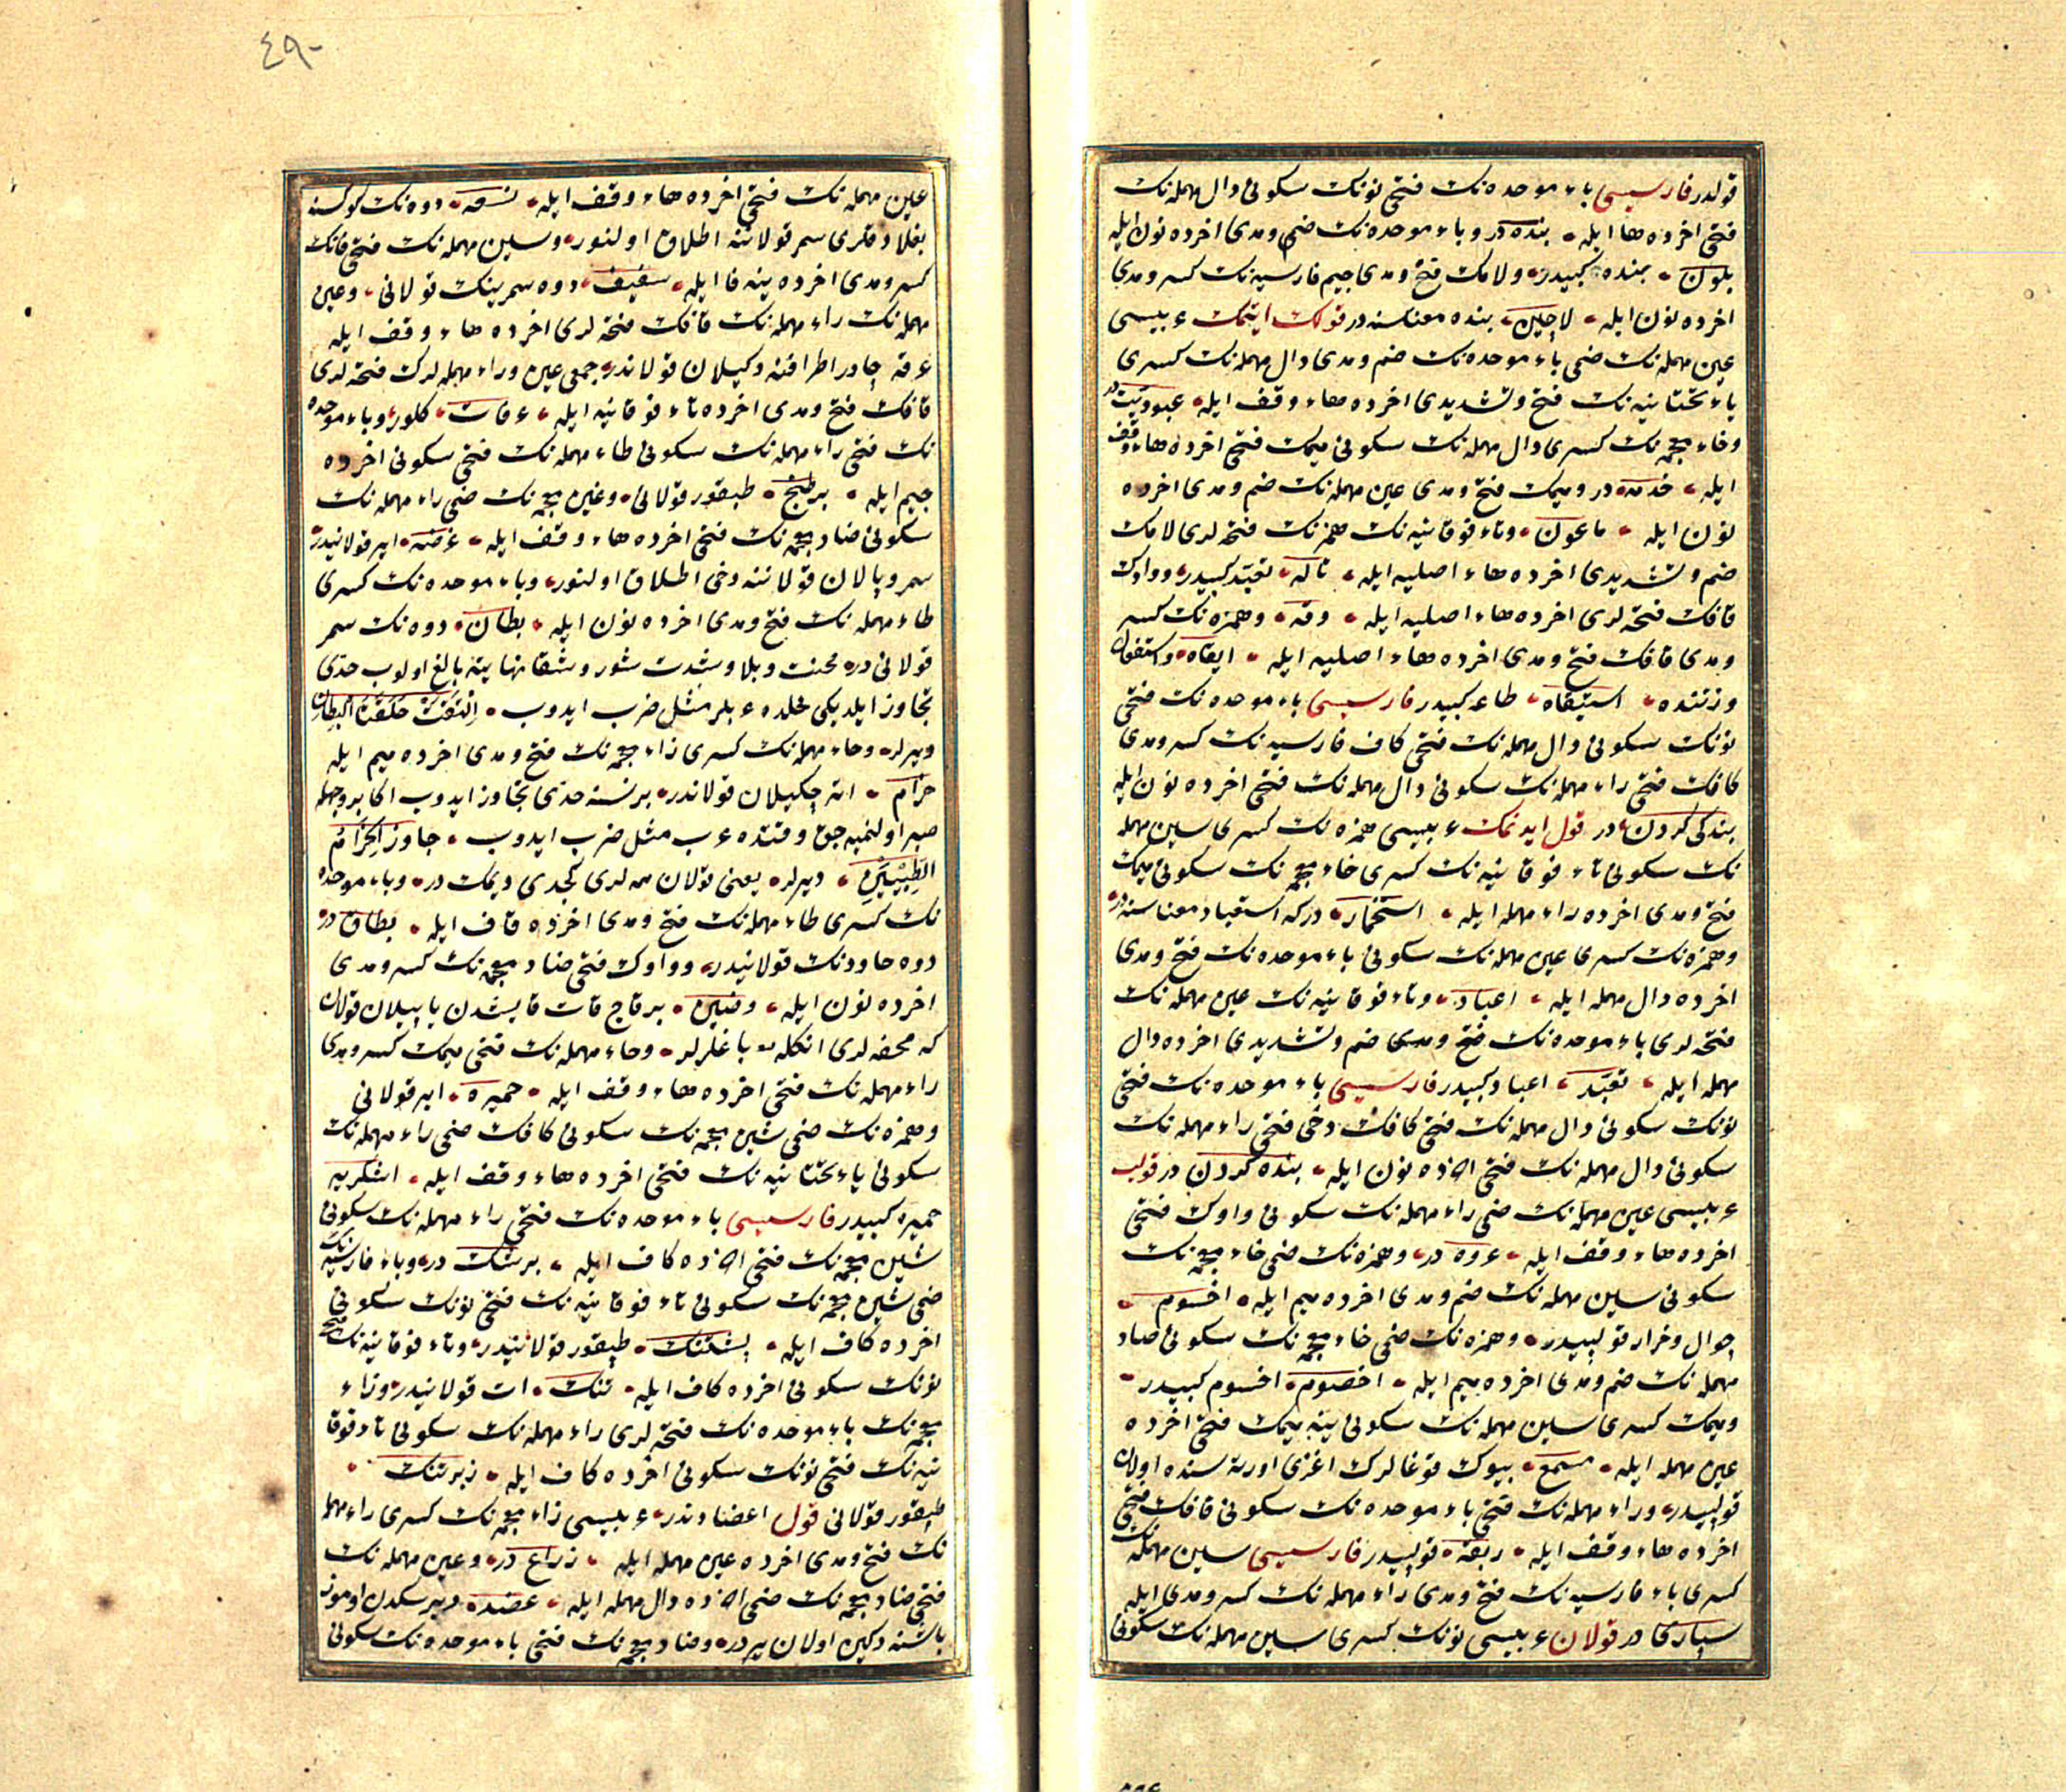 قولدر فارسیسی باء موحده نك فتحی نونك سكونی دال مهمله نك
فتحی اخرده ها ایله بنده در و باء موحده نك ضم و مدی اخرده نون ایله
بلون بنده كبیدر و لامك فتح و مدی جیم فارسیه نك كسر و مدی
اخرده نون ایله لاچین بنده معناسنه در قولك ایتمك عربیسی
عین مهمله نك ضمی باء موحده نك ضم و مدی دال مهمله نك كسری
یاء تحتانیه نك فتح و تشدیدی اخرده هاء وقف ایله عبودیت در
و خاء معجمه نك كسری دال مهمله نك سكونی میمك فتحی اخرده هاء وقف
ایله خدمة در و میمك فتح و مدی عین مهمله نك ضم و مدی اخرده
نون ایله ماعون و تاء فوقانیه نك همزه نك فتحه لری لامك
ضم و تشدیدی اخرده هاء اصلیه ایله تأله تعبد كبیدر و واوك
قافك فتحه لری اخرده هاء اصلیه ایله وقه و همزه نك كسر
و مدی قافك فتح و مدی اخرده هاء اصلیه ایله ایقاه و استفعال
وزننده استیقاه طاعه كبیدر فارسیسی باء موحده نك فتحی
نونك سكونی دال مهمله نك فتحی كاف فارسیه نك كسر و مدی
كافك فتحی راء مهمله نك سكونی دال مهمله نك فتحی اخرده نون ایله
بندكی كردن در قول ایدنمك عربیسی همزه نك كسری سین مهمله
نك سكونی تاء فوقانیه نك كسری خاء معجمه نك سكونی میمك
فتح و مدی اخرده راء مهمله ایله استخمار در كه استعباد معناسنه در
و همزه نك كسری عین مهمله نك سكونی باء موحده نك فتح و مدی
اخرده دال مهمله ایله اعباد و تاء فوقانیه نك عین مهمله نك
فتحه لری باء موحده نك ضم و تشدیدی اخرده دال
مهمله ایله تعبد اعباد كبیدر فارسیسی باء موحده نك فتحی
نونك سكونی دال مهمله نك فتحی كافك دخی فتحی راء مهمله نك
سكونی دال مهمله نك فتحی اخرده نون ایله بنده كردن در قولپ
عربیسی عین مهمله نك ضمی راء مهمله نك سكونی واوك فتحی
اخرده هاء وقف ایله عروه در و همزه نك ضمی خاء معجمه نك
سكونی سین مهمله نك ضم و مدی اخرده میم ایله اخسوم
جوال و خرار قولپیدر و همزه نك ضمی خاء معجمه نك سكونی صاد
مهمله نك ضم و مدی اخرده میم ایله اخصوم اخسوم كبیدر
و میمك كسری سین مهمله نك سكونی ینه میمك فتحی اخرده
عین مهمله ایله مسمع بیوك قوغالرك اغزی اورته سنده اولان
قولپیدر و راء مهمله نك فتحی باء موحده نك سكونی قافك فتحی
اخرده هاء وقف ایله ربقة قولپیدر فارسیسی سین مهمله نك
كسری باء فارسیه نك فتح و مدی راء مهمله نك كسر و مدی ایله
سپاری در قولان عربیسی نونك كسری سین مهمله نك سكونی
٤٩٠
عین مهمله نك فتحی اخرده هاء وقف ایله نسعه دوه نك كوكسنه
بغلادقلری سمر قولاننه اطلاق اولنور و سین مهمله نك فتحی فانك
كسر و مدی اخرده ینه فا ایله سفیف دوه سمرینك قولانی و عین
مهمله نك راء مهمله نك قافك فتحه لری اخرده هاء وقف ایله
عرقه چادر اطرافنه دكیلان قولاندر جمعی عین و راء مهمله لرك فتحه لری
قافك فتح و مدی اخرده تاء فوقانیه ایله عرقات كلور و باء موحده
نك فتحی راء مهمله نك سكونی طاء مهمله نك فتحی سكونی اخرده
جیم ایله برطنج طبقور قولانی و غین معجمه نك ضمی راء مهمله نك
سكونی ضاد معجمه نك فتحی اخرده هاء وقف ایله غرضه ایر قولانیدر
سمر و پالان قولاننه دخی اطلاق اولنور و باء موحده نك كسری
طاء مهمله نك فتح و مدی اخرده نون ایله بطان دوه نك سمر
قولانی در محنت و بلا و شدت شور و شقا نهایته بالغ اولوب حدی
تجاوز ایلدیكی محلده عربلر مثل ضرب ایدوب التقت حلقتا البطان
دیرلر و حاء مهمله نك كسری زاء معجمه نك فتح و مدی اخرده میم ایله
حزام اته چكیلان قولاندر برنسنه حدی تجاوز ایدوب اكا بر وجهله
صبر اولنمیه جق وقتده عرب مثل ضرب ایدوب جاوز الحزام
الطبیین دیرلر یعنی قولان ممه لری كچدی دیمك در و باء موحده
نك كسری طاء مهمله نك فتح و مدی اخرده قاف ایله بطاق در
دوه حاودنك قولانیدر و واوك فتحی ضاد معجمه نك كسر و مدی
اخرده نون ایله وضین بر قاچ قات قایشدن یاپیلان قولان
كه محفه لری انكله باغلرلر و حاء مهمله نك فتحی میمك كسر و مدی
راء مهمله نك فتحی اخرده هاء وقف ایله حمیره ایر قولانی
و همزه نك ضمی شین معجمه نك سكونی كافك ضمی راء مهمله نك
سكونی یاء تحتانیه نك فتحی اخرده هاء وقف ایله اشكریه
حمیره كبیدر فارسیسی باء موحده نك فتحی راء مهمله نك سكونی
شین معجمه نك فتحی اخرده كاف ایله برشك در و باء فارسیه نك
ضمی شین معجمه نك سكونی تاء فوقانیه نك فتحی نونك سكونی
اخرده كاف ایله پشتنك طبقور قولانیدر و تاء فوقانیه نك فتحی
نونك سكونی اخرده كاف ایله تنك ات قولانیدر و زاء
معجمه نك باء موحده نك فتحه لری راء مهمله نك سكونی تاء فوقا
نیه نك فتحی نونك سكونی اخرده كاف ایله زبرتنك
طبقور قولانی قول اعضادندر عربیسی ذاء معجمه نك كسری راء مهمله
نك فتح و مدی اخرده عین مهمله ایله ذراع در و عین مهمله نك
فتحی ضاد معجمه نك ضمی اخرده دال مهمله ایله عضد در دیرسكدن اوموز
باشنه دكین اولان یردر و ضاد معجمه نك فتحی باء موحده نك سكونی